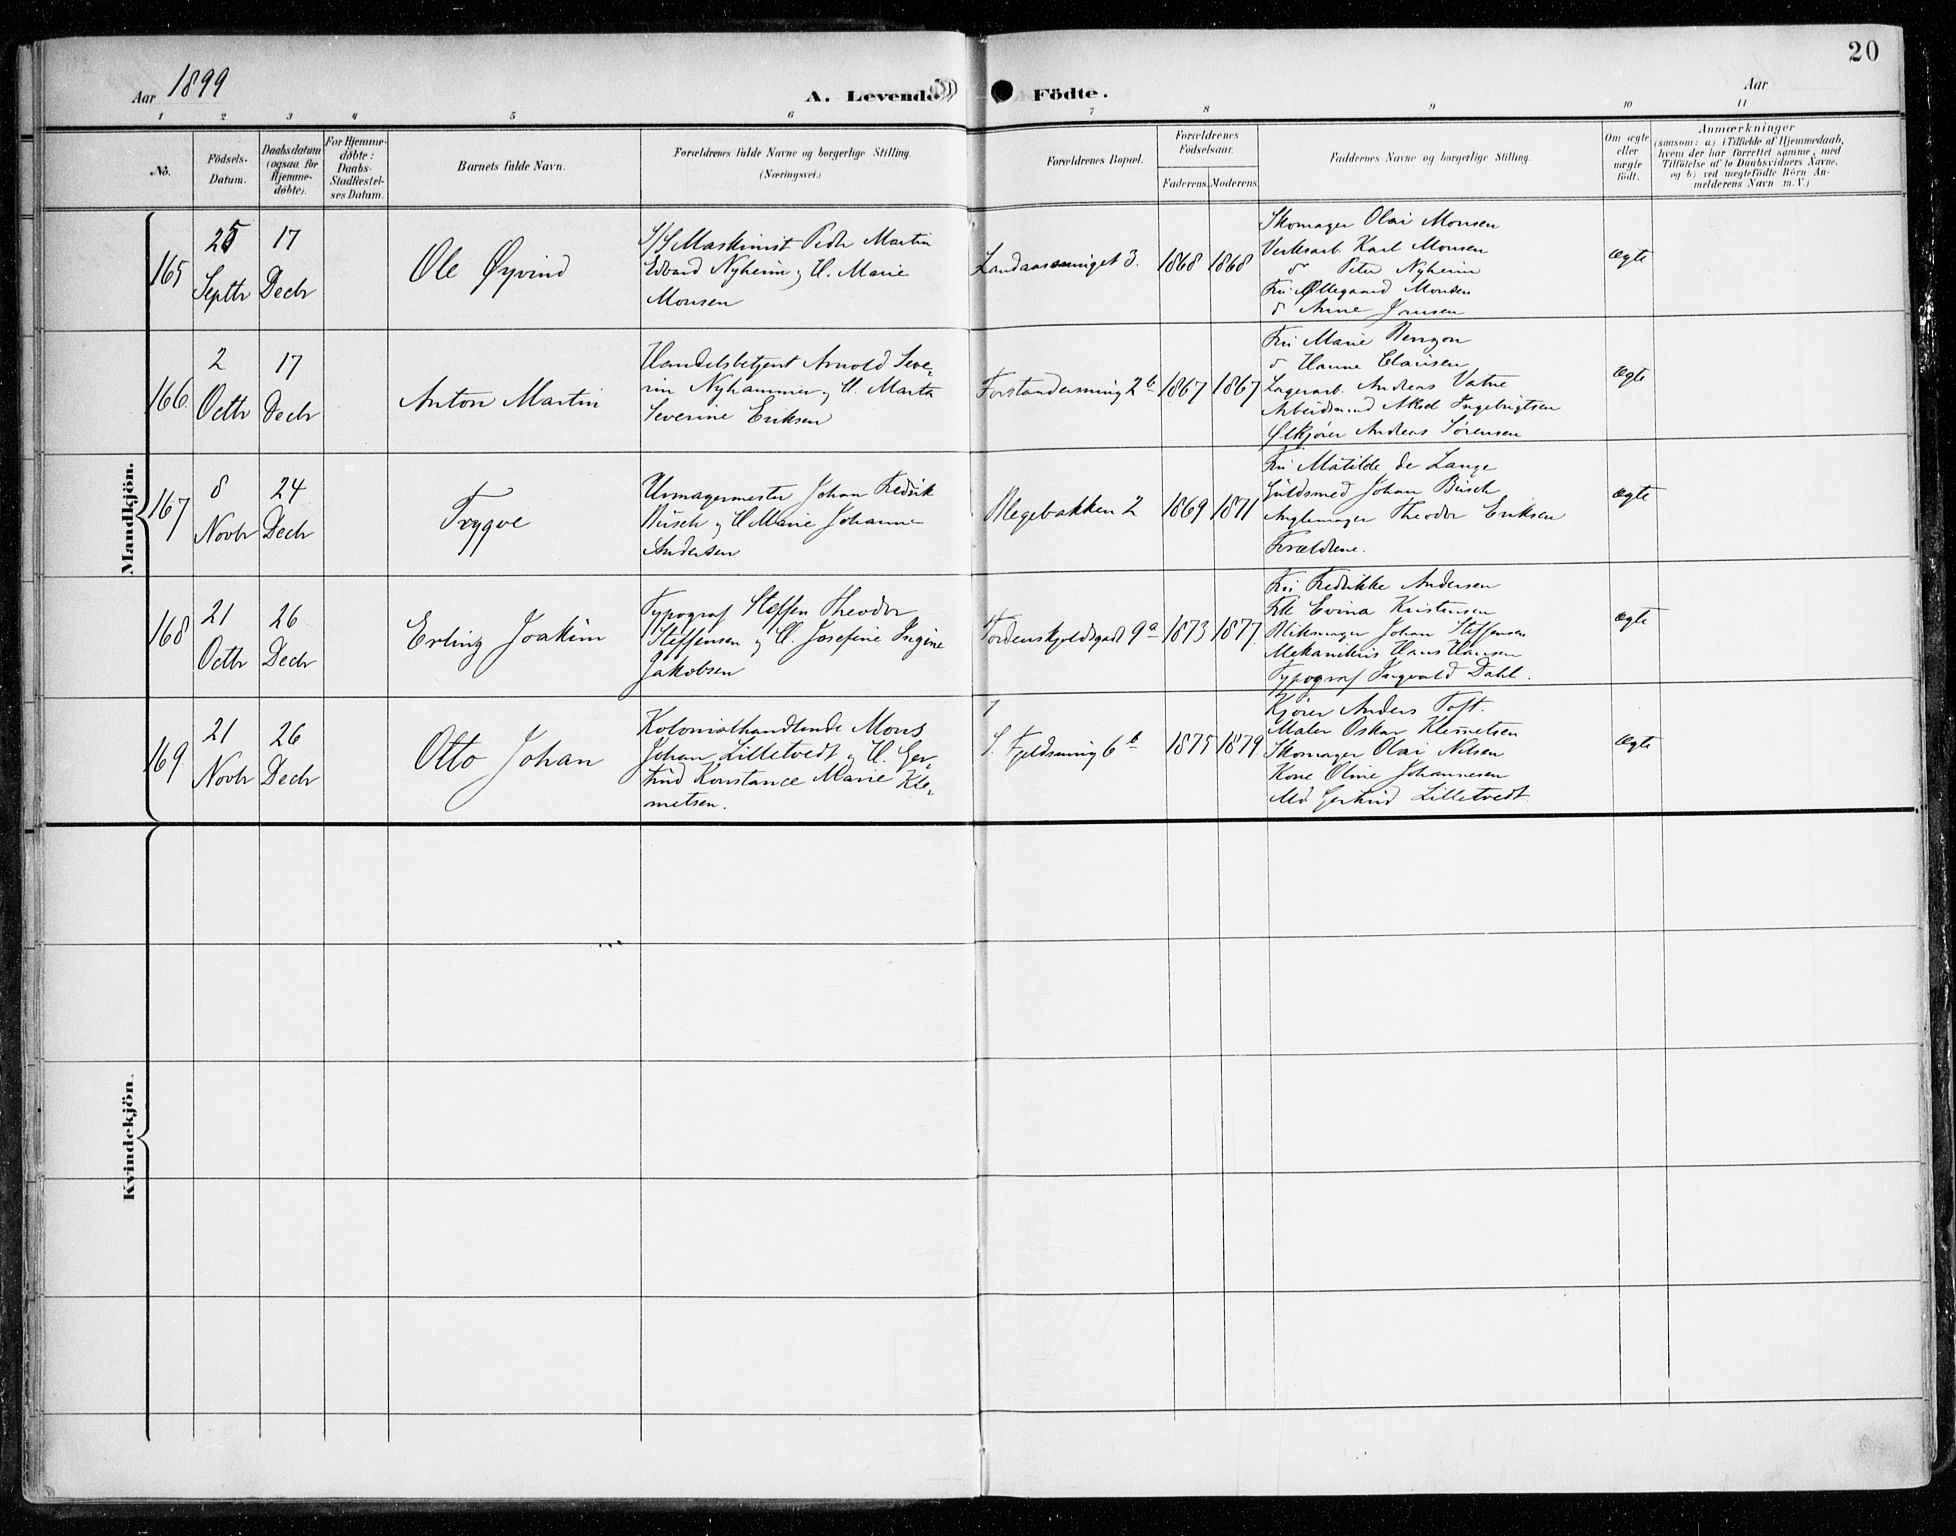 20
Aar 1899
A. Levende Födte.
Aar
1 2 3 4 5 6 7 8 9 10 11
Nò.
Födsels-Datum.
Daabsdatum (ogsaa for Hjemme-döbte).
For Hjemme-döbte: Daabs-Stadfæstel-ses Datum.
Barnets fulde Navn.
Forældrenes fulde Navne og borgerlige Stilling.
(Næringsvei.)
Forældrenes Bopæl.
Forældrenes Födselsaar.
Faderens. Moderens.
Faddernes Navne og borgerlige Stilling.
Om ægte eller uægte födt.
Anmærkninger
(saasom: a) i Tilfælde af Hjemmedaab,
hvem der har forrettet samme, med
Tilföielse af to Daabsvidners Navne,
og b) ved uægtefödte Börn An-
melderens Navn m. V.)
Mandkjön.
165
25 Septbr
17 Decbr
Ole Øyvind
S/S Maskinist Peder Martin
Edvard Nyheim og H. Marie
Monsen
3.
1868 1868
Skomager Olai Monsen
Verksarb. Karl Monsen
Peter Nyheim
Fru Øllegaard Monsen
Anne Jonsen
ægte
166
2 Octbr
17 Decbr
Anton Martin
Handelsbetjent Arnold Seve-
rin Nyhammer og H. Marta
Severine Eriksen
Forstandersmug 2 b
1867 1867
Fru Marie
Hanne Clausen
Lagerarb. Andreas Vatne
Arbeidsmand Aksel Ingebrigtsen
Ølkjører Andreas Sørensen
ægte
167
8 Novbr
24 Decbr
Trygve
Urmagermester Johan Fredrik
Büsch og H. Marie Johanne
Andersen
Blegebakken 2
1869 1871
Fru Matilde de Lange
Guldsmed Johan Büsch
Theodor Eriksen
Forældrene.
ægte
168
21 Octbr
26 Decbr
Erling Joakim
Typograf Steffen Theodor
Steffensen og H. Josefine
Jakobsen
Tordenskjoldsgade 9 a
1873 1877.
Fru Fredrikke Andersen
Frk Evina Kristensen
Blikmager Johan Steffensen
Mekanikus Hans Hansen
Typograf Ingvald Dahl.
ægte
169
21 Novbr
26 Decbr
Otto Johan
Kolonialhandlende Mons
Johan Lilletvedt og H. Ger-
trud Konstance Marie Kle-
metsen.
S. Fjeldsmug 6 b
1875 1879.
Kjører Anders Toft.
Maler Oskar Klemetsen
Skomager Olai Nilsen
Kone Oline Johannesen
Md Gertrud Lilletvedt.
ægte
Kvindekjön.